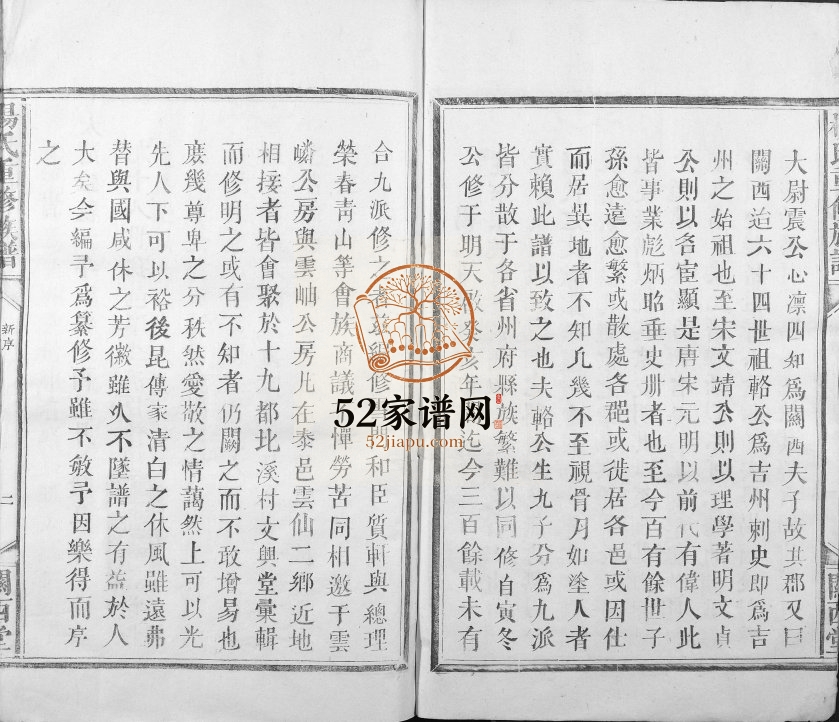 大尉震公心凛四知為關西夫子故其郡又曰
關西迨六十四世祖輅公爲吉州刺史即爲吉
州之始祖也至宋文靖公則以理學著明文貞
公則以名宦顯是唐宋元明以前代有偉人此
皆事業彪炳昭垂史册者也至今百有餘世子
孫愈遠愈繁或散處各郡或徙居各邑或因仕
而居異地者不知凡幾不至視骨月如塗人者
實賴此譜以致之也夫輅公生九子分爲九派
皆分散于各省州府縣族繁難以同修自寅冬
公修于明天啟癸亥年迄今三百餘載未有
合九派修之者修和臣質軒與總理
榮春青山等會族商議不憚勞苦同相邀于雲
嶙公房與雲岫公房凡在泰邑雲仙二鄉近地
相接者皆會聚於十九都北溪村文興堂彙輯
而修明之或有不知者仍闕之而不敢增易也
庶幾尊卑之分秩然愛敬之情藹然上可以光
先人下可以裕後昆傳家清白之休風雖遠弗
替與國咸休之芳徽雖久不墜譜之有益於人
大矣今編予爲纂修予雖不敏予因樂得而序
之
楊氏重修族譜
新序
二
關西堂
52家谱网
52jiapu.com